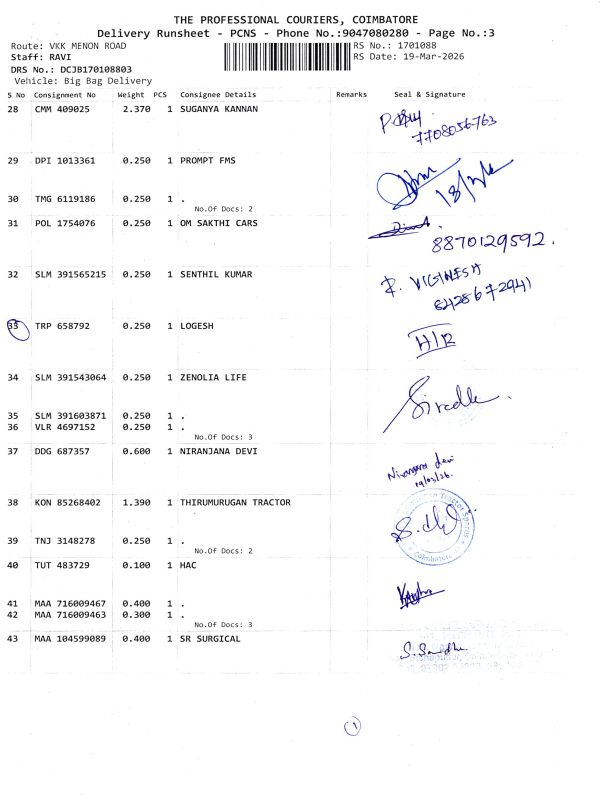 THE PROFESSIONAL COURIERS, COIMBATORE
Delivery Runsheet - PCNS - Phone No.:9047080280 - Page No.:3
Route: VKK MENON ROAD RS No.: 1701088
Staff: RAVI RS Date: 19-Mar-2026
DRS No.: DCJB170108803
Vehicle: Big Bag Delivery
S No Consignment No Weight PCS Consignee Details Remarks Seal & Signature
28 CMM 409025 2.370 1 SUGANYA KANNAN
7708056763
29 DPI 1013361 0.250 1 PROMPT FMS
30 TMG 6119186 0.250 1 .
No.Of Docs: 2
31 POL 1754076 0.250 1 OM SAKTHI CARS
8870129592.
32 SLM 391565215 0.250 1 SENTHIL KUMAR
R. VIGINESH
8428672941
33 TRP 658792 0.250 1 LOGESH
H/R
34 SLM 391543064 0.250 1 ZENOLIA LIFE
35 SLM 391603871 0.250 1 .
36 VLR 4697152 0.250 1 .
No.Of Docs: 3
37 DDG 687357 0.600 1 NIRANJANA DEVI
Niranjana devi
19/03/26
38 KON 85268402 1.390 1 THIRUMURUGAN TRACTOR
Tractor Spares
Coimbatore
39 TNJ 3148278 0.250 1 .
No.Of Docs: 2
40 TUT 483729 0.100 1 HAC
41 MAA 716009467 0.400 1 .
42 MAA 716009463 0.300 1 .
No.Of Docs: 3
43 MAA 104599089 0.400 1 SR SURGICAL
1